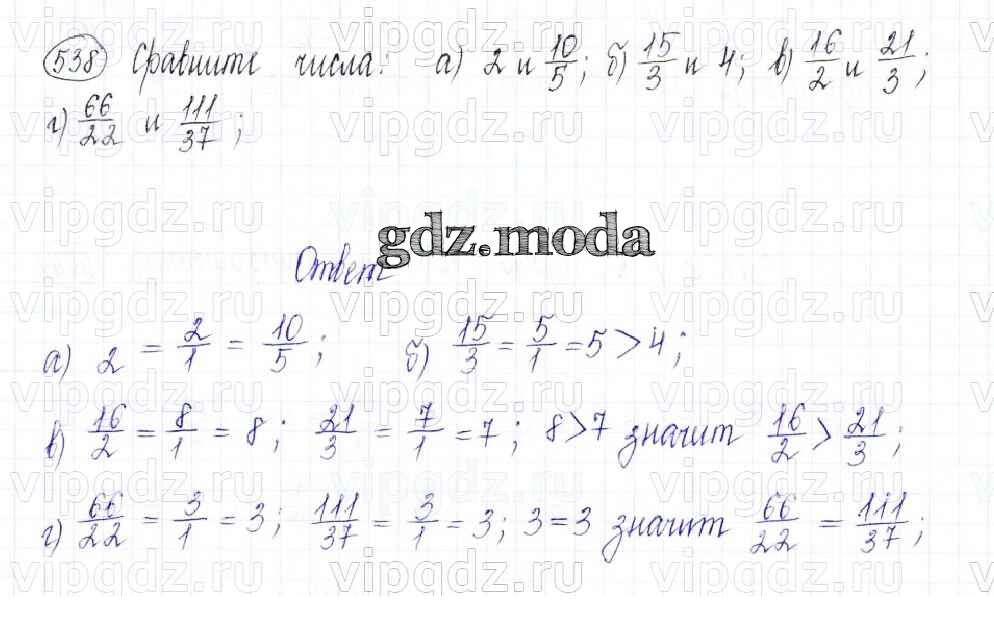 538 Сравните числа: а) 2 и 10/5; б) 15/3 и 4; в) 16/2 и 21/3;
г) 66/22 и 111/37;
gdz.moda
Ответ
а) 2 = 2/1 = 10/5; б) 15/3 = 5/1 = 5 > 4;
в) 16/2 = 8/1 = 8; 21/3 = 7/1 = 7; 8 > 7 значит 16/2 > 21/3;
г) 66/22 = 3/1 = 3; 111/37 = 3/1 = 3; 3 = 3 значит 66/22 = 111/37;
vipgdz.ru